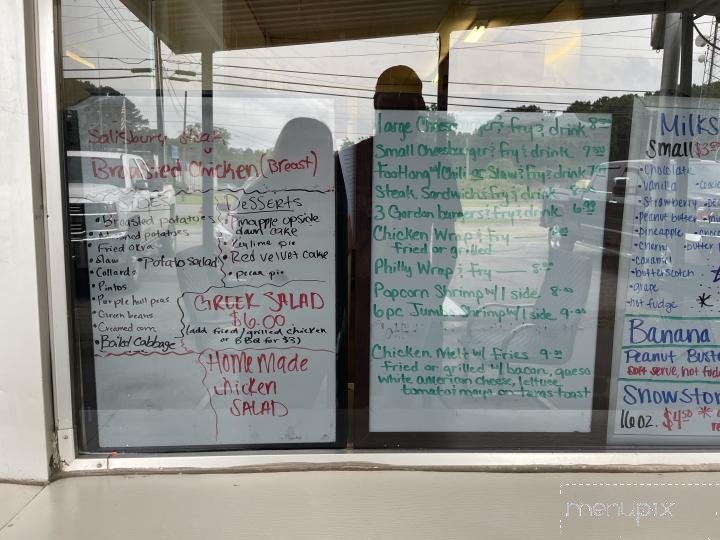 Salisbury Steak
Broasted Chicken (Breast)
Broasted potatoes
potatoes
Fried okra
Slaw
Potato Salad
Collards
Pintos
Purple hull peas
Green beans
Creamed corn
Boiled Cabbage
Desserts
Pineapple upside
down cake
Key lime pie
Red velvet cake
pecan pie
GREEK SALAD
$6.00
(add fried/grilled chicken
or BBQ for $3)
HomeMade
chicken
SALAD
large Cheeseburger & fry & drink
Small Cheesburger & fry & drink
Footlong w/ Chili or Slaw & fry & drink
Steak Sandwich & fry & drink
3 Gordon burgers & fry & drink
Chicken Wrap & fry
fried or grilled
Philly Wrap & fry
Popcorn Shrimp w/ 1 side
6pc Jumbo Shrimp w/ 1 side
Chicken Melt w/ fries
fried or grilled w/ bacon, queso
white american cheese, lettuce,
tomato, mayo on texas toast
Milks
Small
Chocolate
Vanilla
Strawberry
Peanut butter
pineapple
cherry
caramel
butterscotch
grape
hot fudge
Banana
Peanut Buste
Soft serve, hot fud
Snowstor
16oz. $4.50
menupix